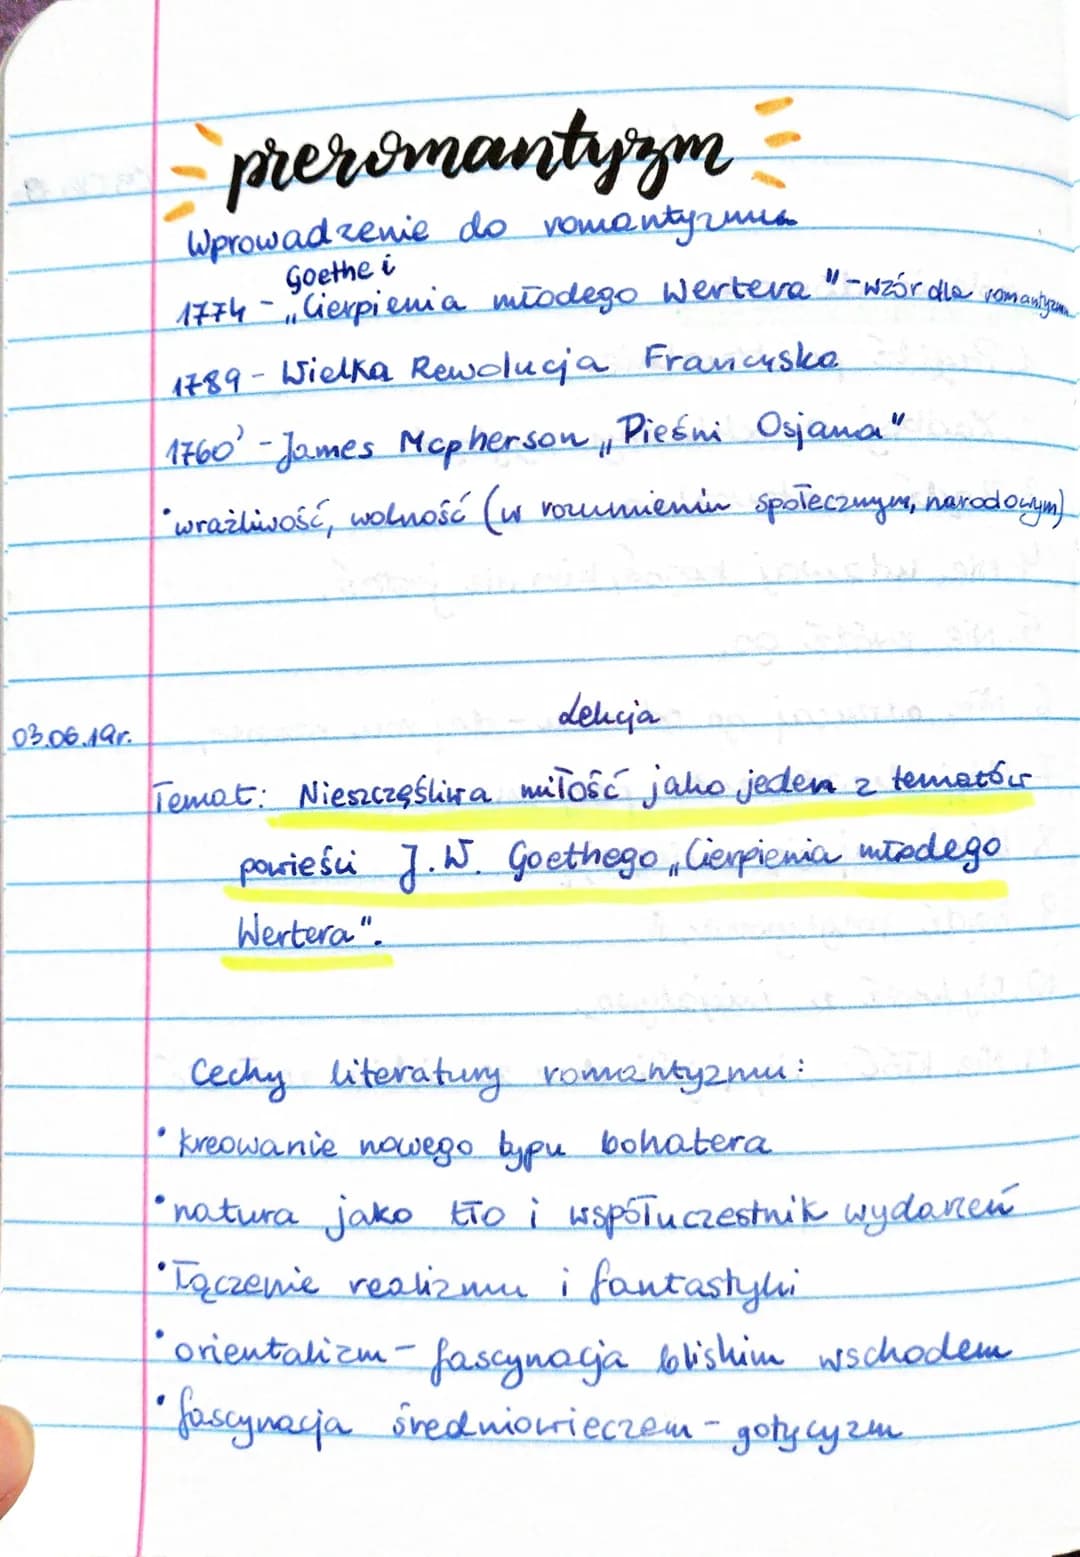 preromantyzm
Wprowadzenie do romantyzmu
Goethe i
1774 - „Cierpienia młodego Wertera" - wzór dla romantyzmu
1789 - Wielka Rewolucja Francuska
1760' - James Mcpherson „Pieśni Osjana"
• wrażliwość, wolność (w rozumieniu społecznym, narodowym)
Lekcja
03.06.19r.
Temat: Nieszczęśliwa miłość jako jeden z tematów
powieści J.W. Goethego „Cierpienia młodego
Wertera".
Cechy literatury romantyzmu:
• kreowanie nowego typu bohatera
• natura jako tło i współuczestnik wydarzeń
• łączenie realizmu i fantastyki
• orientalizm - fascynacja bliskim wschodem
• fascynacja średniowieczem - gotycyzm